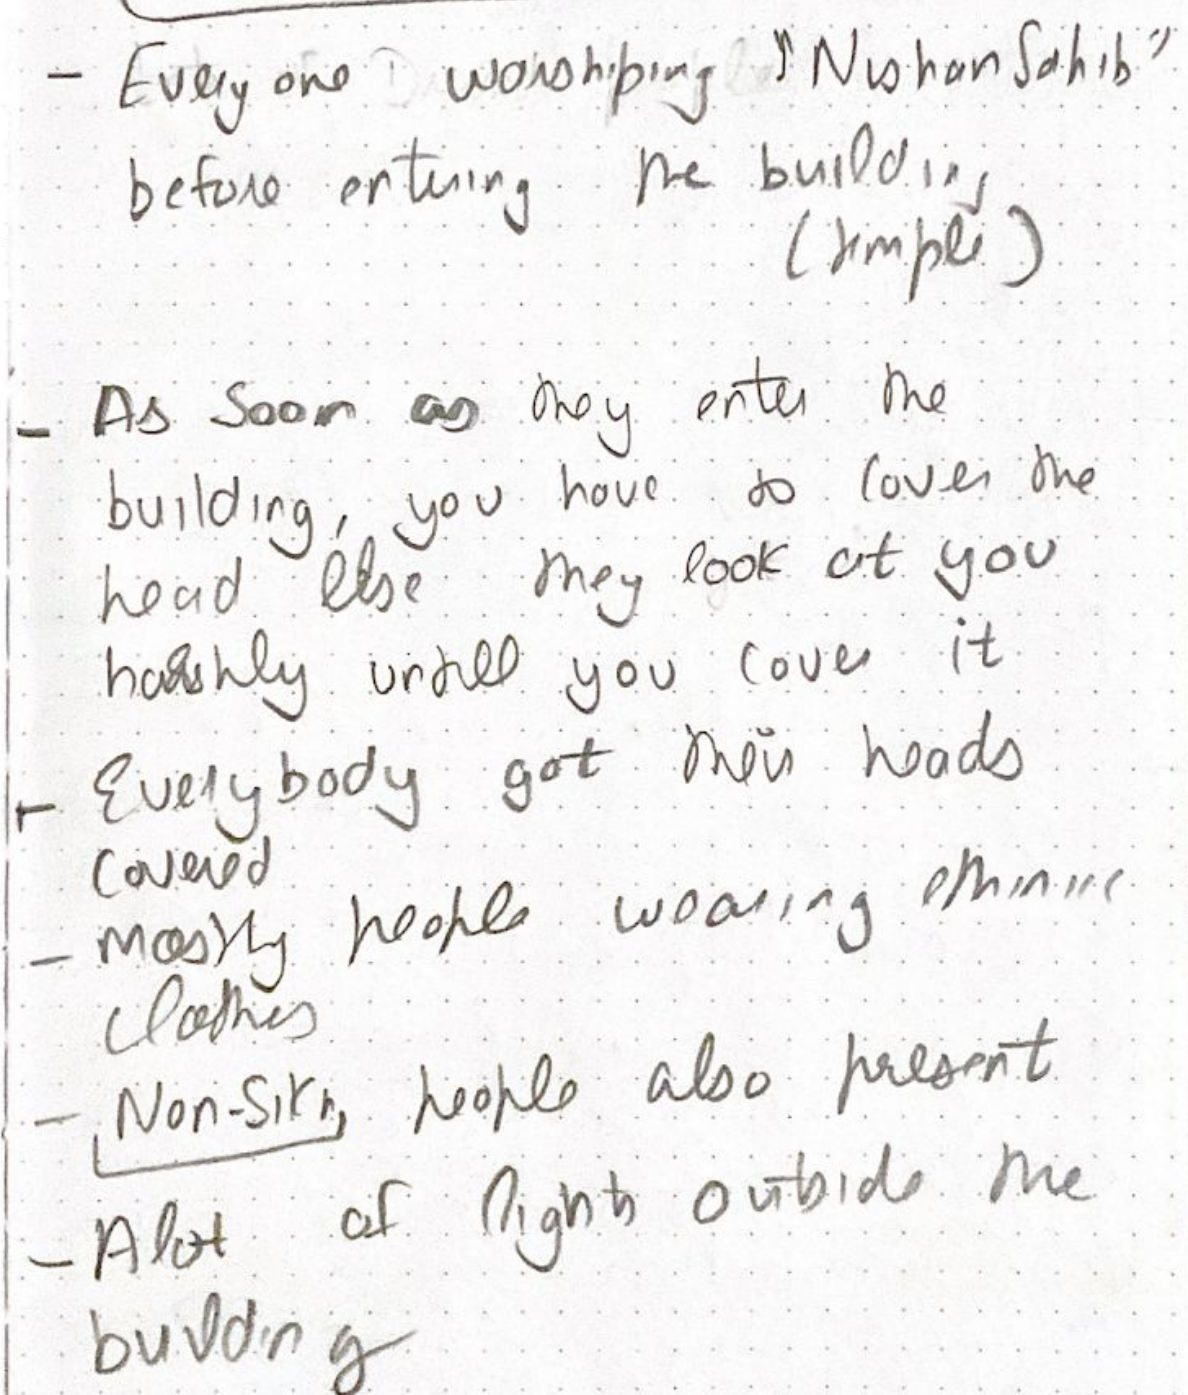 - Everyone worshiping "Nishan Sahib"
before entering the building
(temple)
- As soon as they enter the
building, you have to cover the
head else they look at you
harshly untill you cover it
- Everybody got their heads
covered
- Mostly people wearing
clothes
- Non-Sikh people also present
- Alot of lights outside the
building